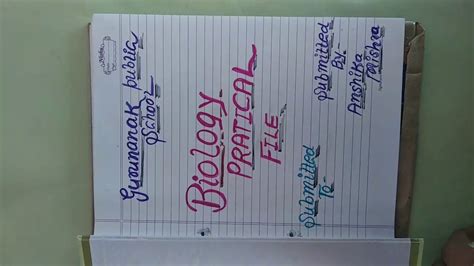 Gurunanak public
School
BIOLOGY
PRATICAL
FILE
Submitted
To-
Submitted
By-
Anshika
Mishra